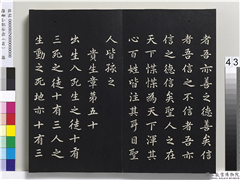 者吾亦善之德善矣信
者吾信之不信者吾亦
信之德信矣聖人之在
天下惵惵為天下渾其
心百姓皆注其耳目聖
人皆孩之
貴生章第五十
出生入死生之徒十有
三死之徒十有三人之
生動之死地亦十有三
43